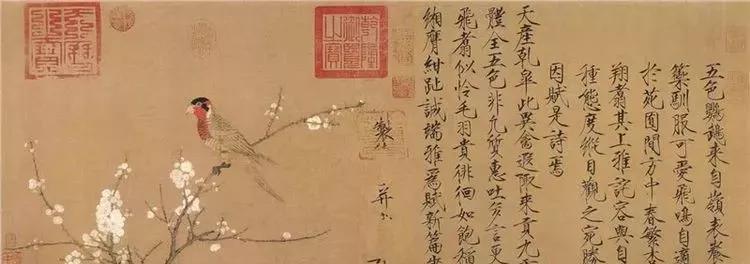 五色鸚鵡來自嶺表養
籞馴服可愛飛鳴自適
於苑囿間方中春繁杏
翔翥其上雅詫容與自
種態度縱目觀之宛勝
因賦是詩焉
天產乾皋此異禽遐陬來貢九重
體全五色非凡質惠吐多言更
飛翥似憐毛羽貴徘徊如飽稻
緗膺紺趾誠端雅為賦新篇步
製
并書